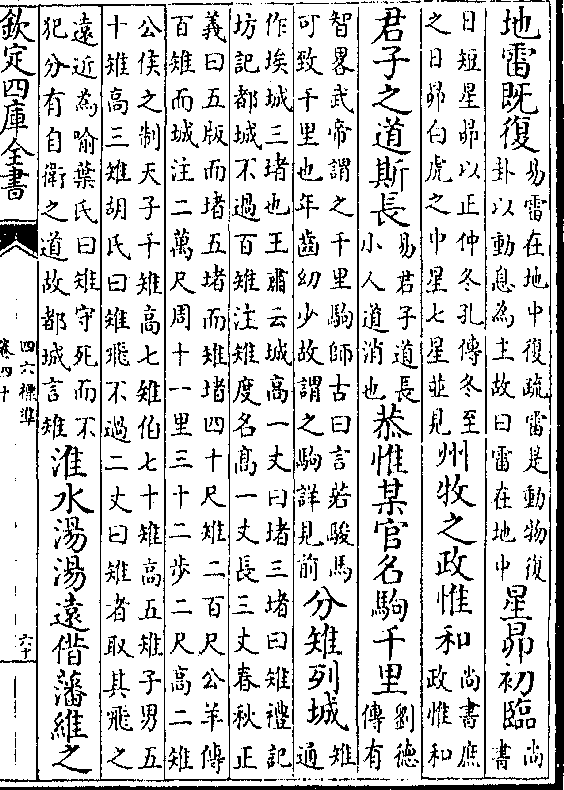 地雷既復易雷在地中復疏雷是動物復
卦以動息為主故曰雷在地中星昴初臨尚
書
日短星昴以正仲冬孔傳冬至
之日昴白虎之中星七星並見州牧之政惟和尚書庶
政惟和
君子之道斯長易君子道長
小人道消也恭惟某官名駒千里劉德
傳有
智畧武帝謂之千里駒師古曰言若駿馬
可致千里也年齒幼少故謂之駒詳見前分雉列城雉
通
作埃城三堵也王肅云城高一丈曰堵三堵曰雉禮記
坊記都城不過百雉注雉度名髙一丈長三丈春秋正
義曰五版而堵五堵而雉堵四十尺雉二百尺公羊傳
百雉而城注二萬尺周十一里三十二步二尺高二雉
公侯之制天子千雉高七雉伯七十雉高五雉子男五
十雉高三雉胡氏曰雉飛不過二丈曰雉者取其飛之
遠近為喻葉氏曰雉守死而不
犯分有自衛之道故都城言雉淮水湯湯遠偕藩維之
欽定四庫全書
四六標準
卷四十
六十